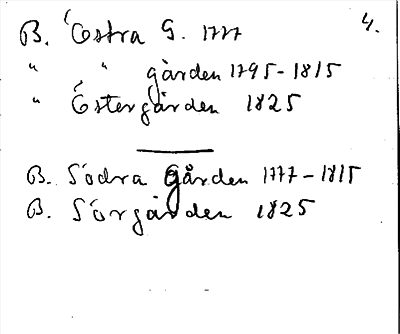 4.
B. Östra G. 1777
" " gården 1795-1815
" Östergården 1825
B. Södra Gården 1777-1815
B. Sörgården 1825